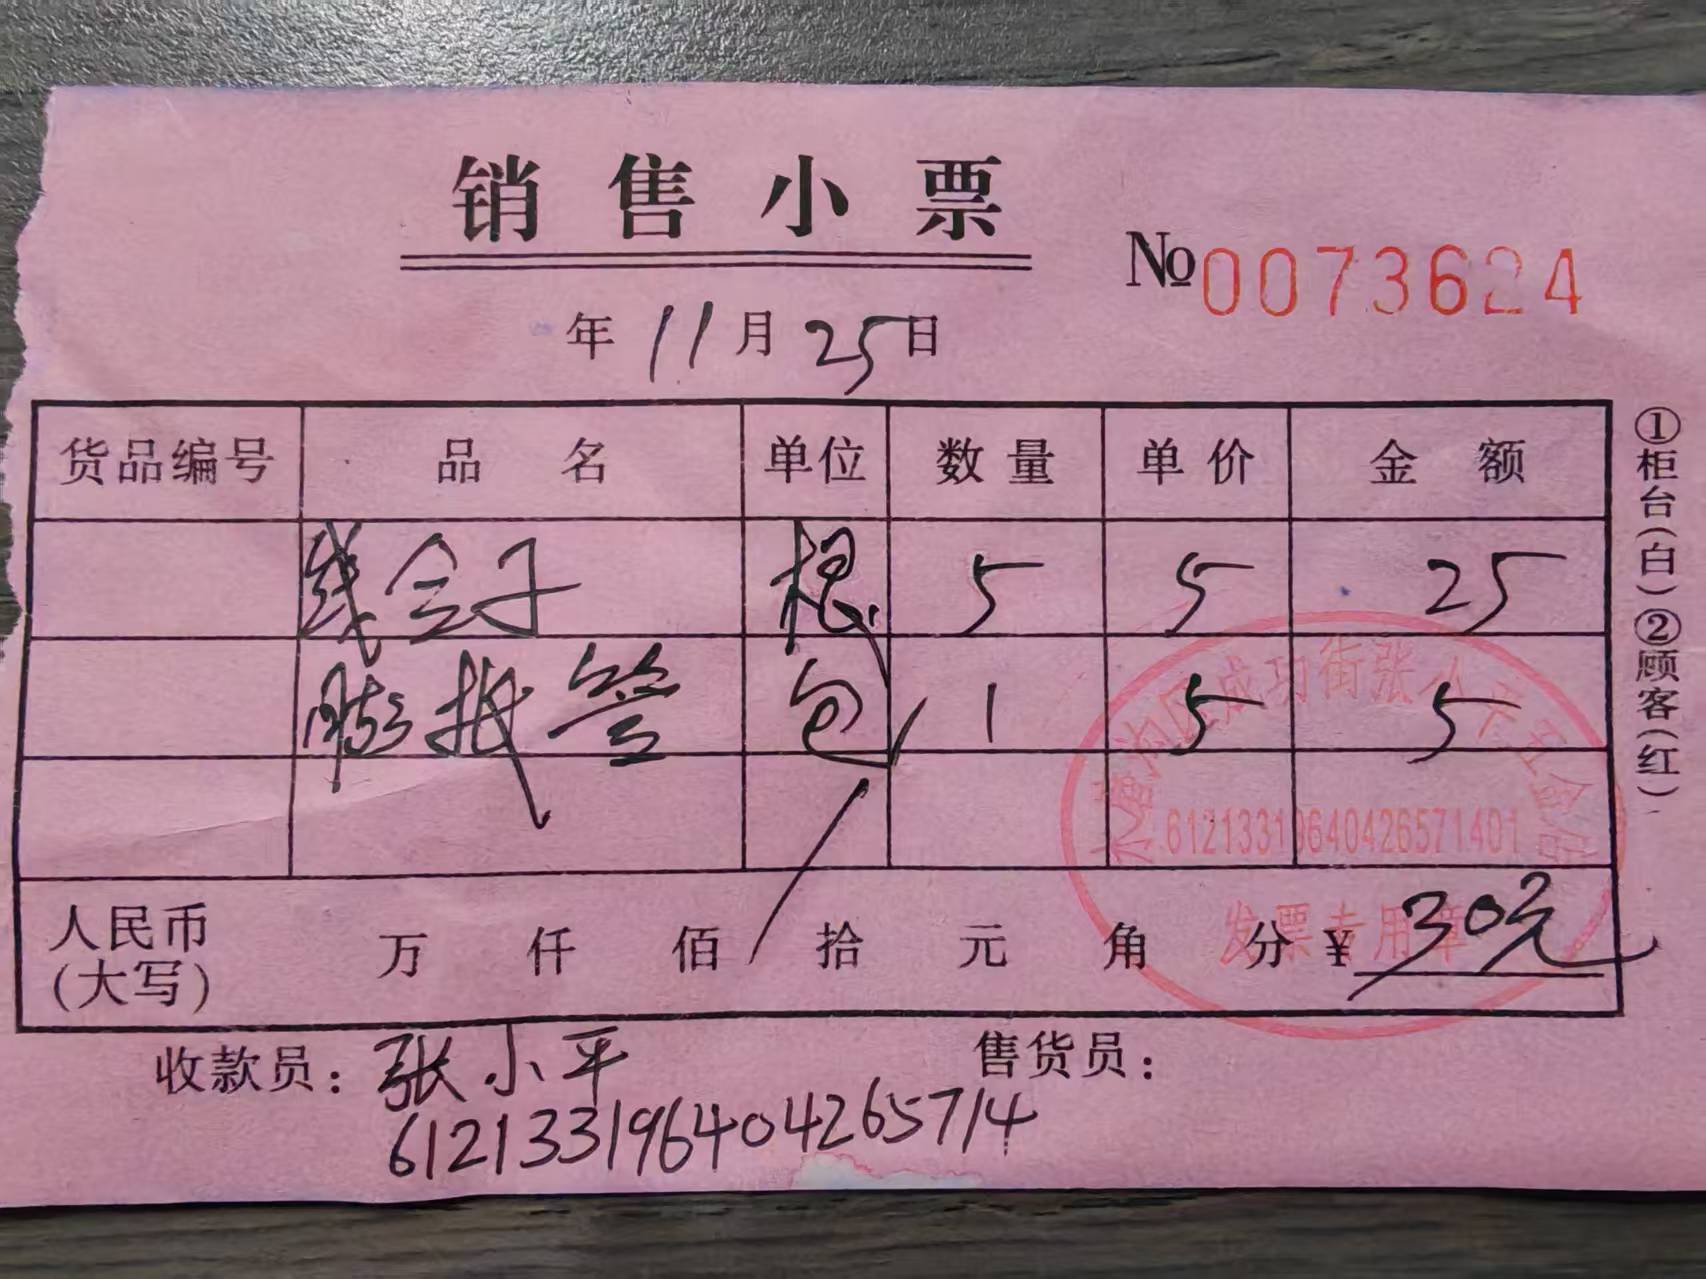 销售小票
No 0073624
年 11 月 25 日
货品编号 品名 单位 数量 单价 金额
线盒子 根 5 5 25
膨 管 包 1 5 5
人民币(大写) 万 仟 佰 拾 元 角 分 ¥ 30元
收款员：张小平 售货员：
612133196404265714
①柜台(白) ②顾客(红)
成功街张
61213319640426571401
发票专用章